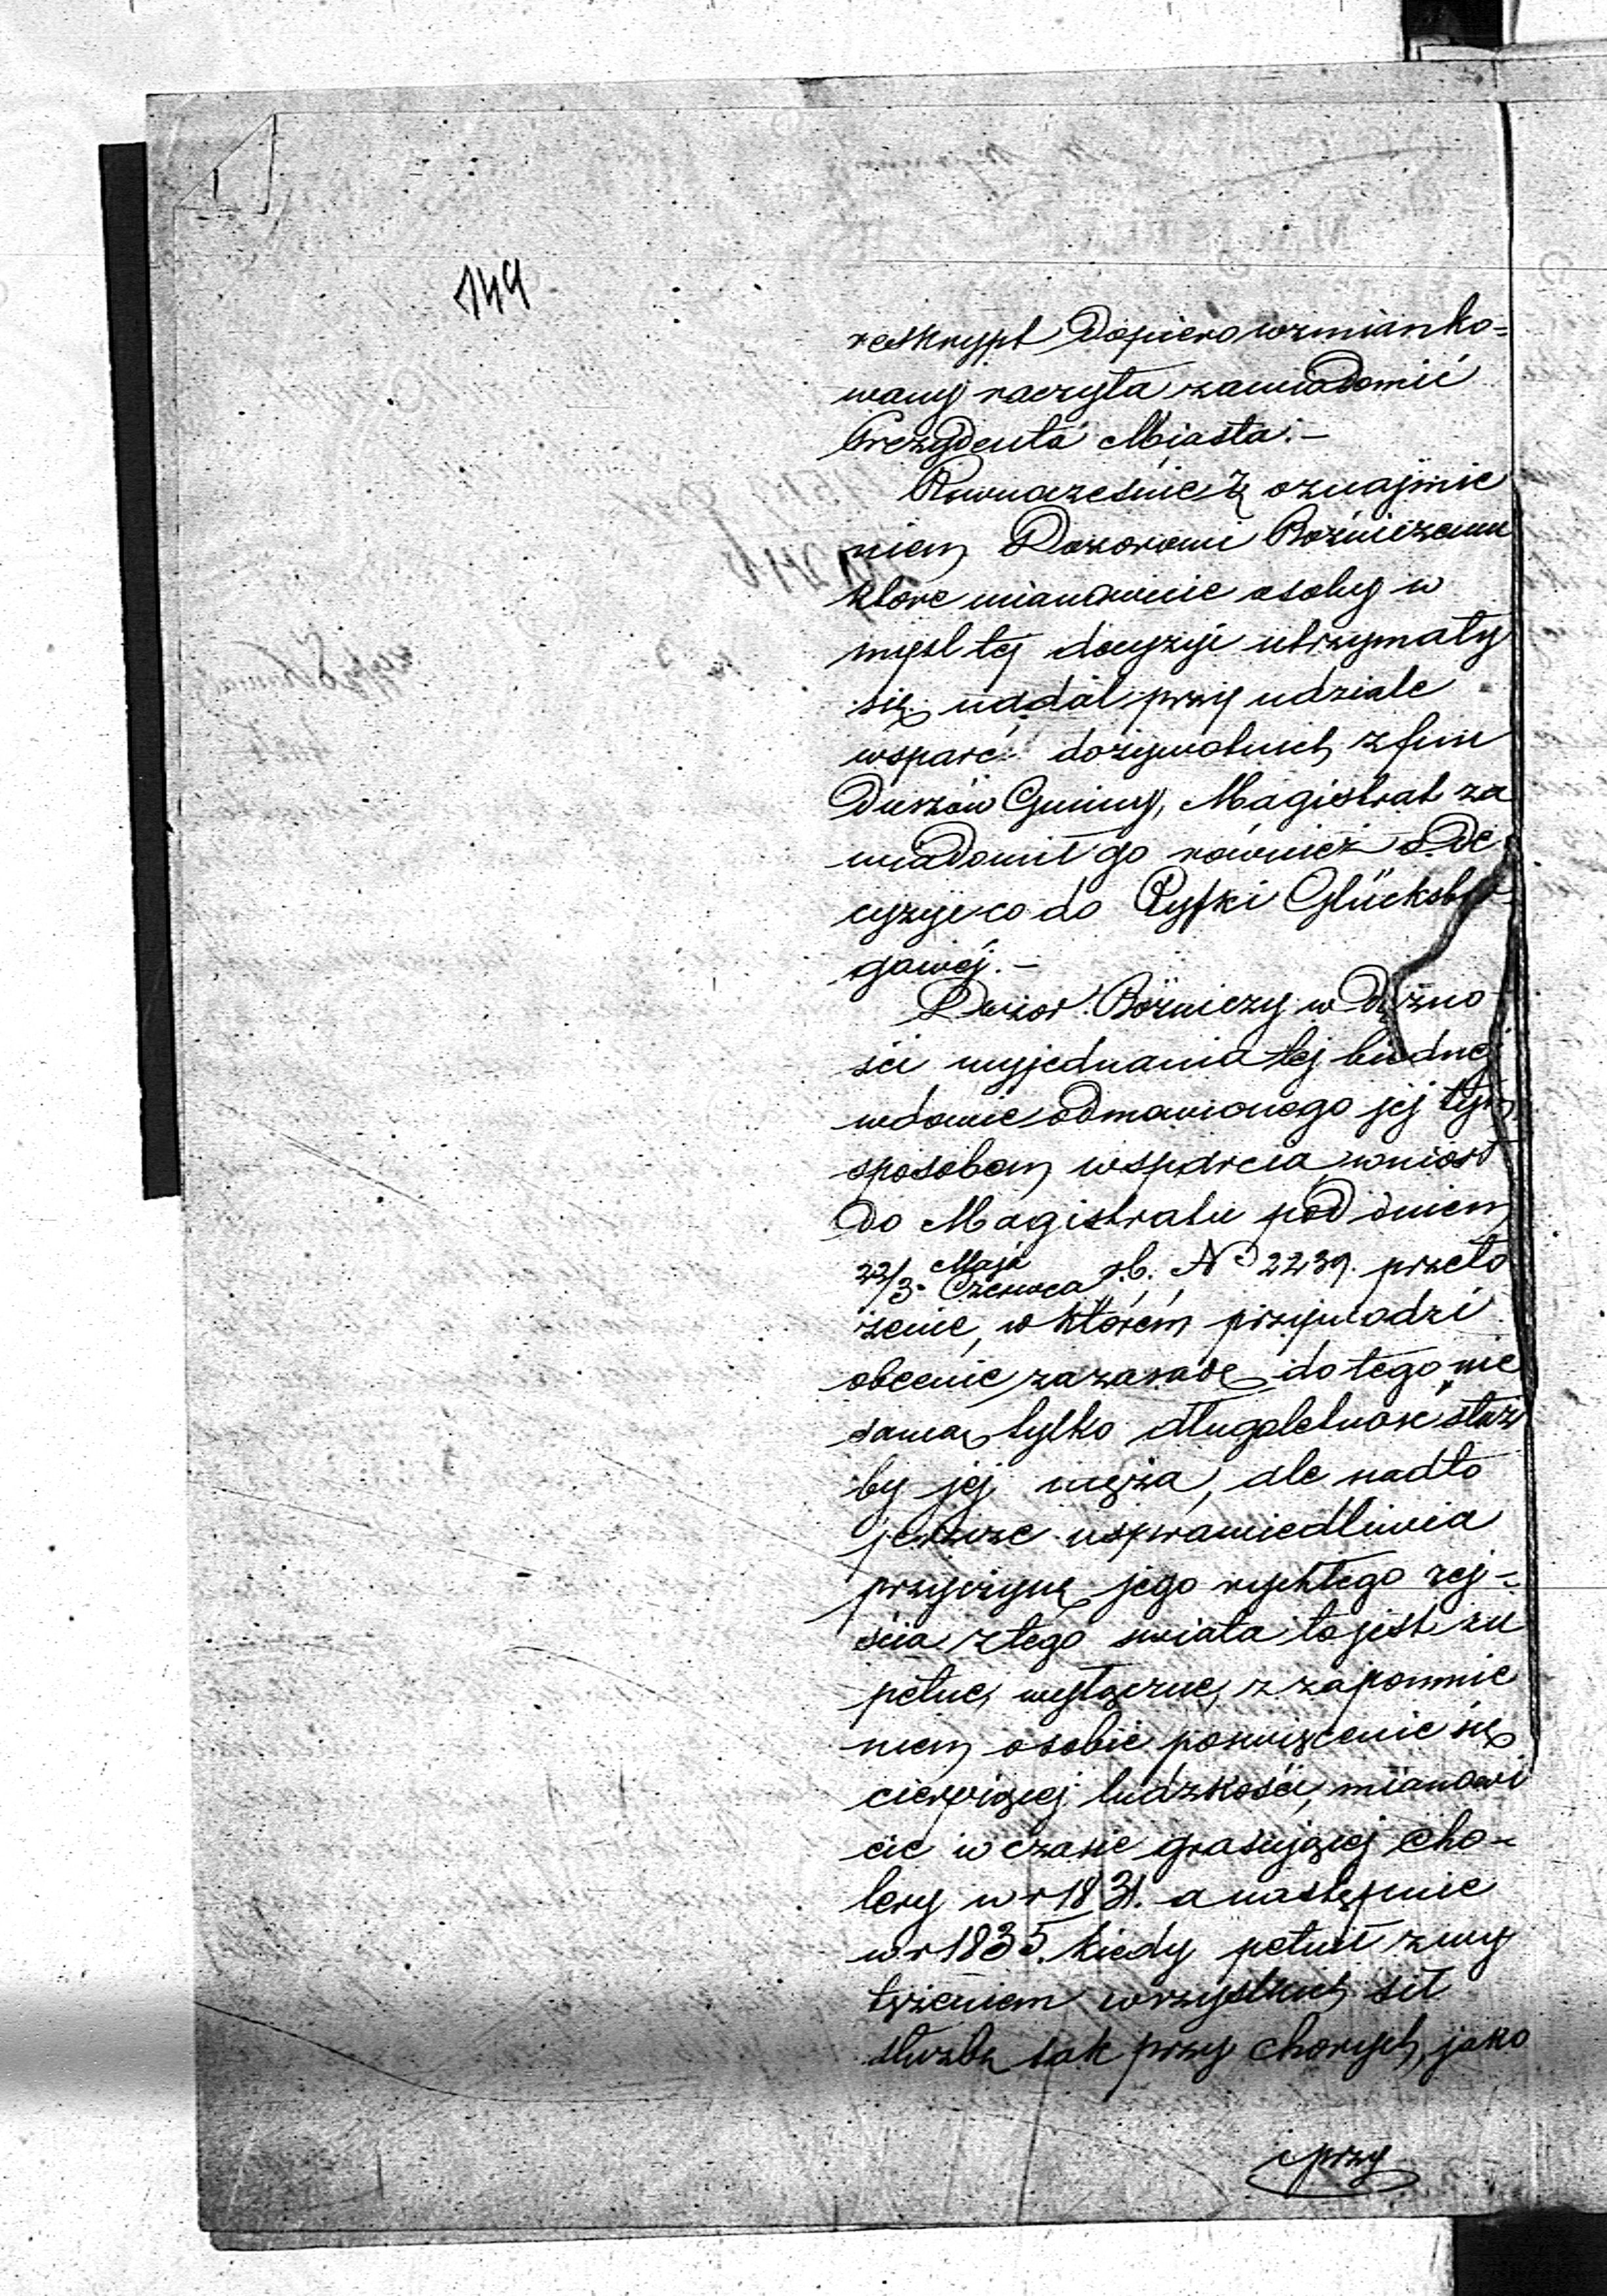 149
reskrypt dopiero wzmianko=
wany raczyła zawiadomić
Prezydenta Miasta.—
Rownocześnie z oznajmie
niem Dozorowi Bożniczemu
które mianowicie osoby w
myśl tej decyzyi utrzymały
się nadal przy udziale
wsparć dożywotnich z fun
duszów Gminy, Magistrat za
wiadomił go również o De
cyzyi co do Ryfki Glücksbe
gowéj.—
Dozor Bożniczy w dążno
ści wyjednania tej biednej
wdowie odmowionego jej tym
sposobem wsparcia wniosł
do Magistratu pod dniem
22/3 Maja Czerwca r.b. No 2239. przeło
żenie, w ktorém przywodzi
obecnie za zasadę do tego nie
samą tylko długoletność służ
by jej męża, ale nadto
jeszcze usprawiedliwia
przyczynę jego rychłego zej=
ścia z tego swiata to jest zu
pełne, wyłączne, z zapomnie
niem o sobie poswięcenie się
cierpiącej ludzkości, mianowi
cie w czasie grasującej cho-
lery w r 1831. a następnie
w r 1835. kiedy pełnił z wy
tężeniem wszystkich sił
służbę tak przy chorych, jako
przy